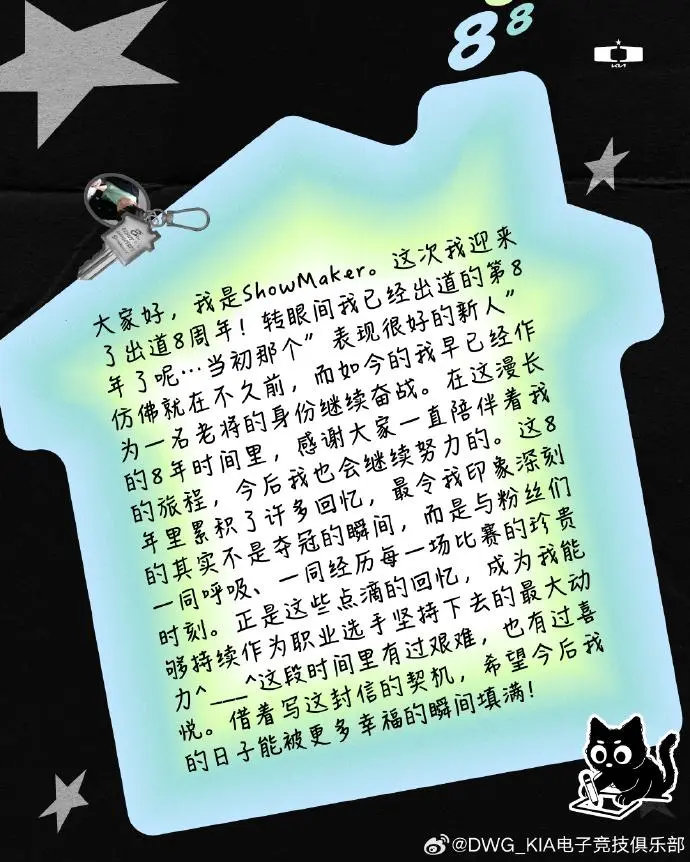 88
KIA
大家好，我是ShowMaker。这次我迎来
了出道8周年！转眼间我已经出道的第8
年了呢…当初那个"表现很好的新人"
仿佛就在不久前，而如今的我早已经作
为一名老将的身份继续奋战。在这漫长
的8年时间里，感谢大家一直陪伴着我
的旅程，今后我也会继续努力的。这8
年里累积了许多回忆，最令我印象深刻
的其实不是夺冠的瞬间，而是与粉丝们
一同呼吸、一同经历每一场比赛的珍贵
时刻。正是这些点滴的回忆，成为我能
够持续作为职业选手坚持下去的最大动
力^___^这段时间里有过艰难，也有过喜
悦。借着写这封信的契机，希望今后我
的日子能被更多幸福的瞬间填满！
@DWG_KIA电子竞技俱乐部